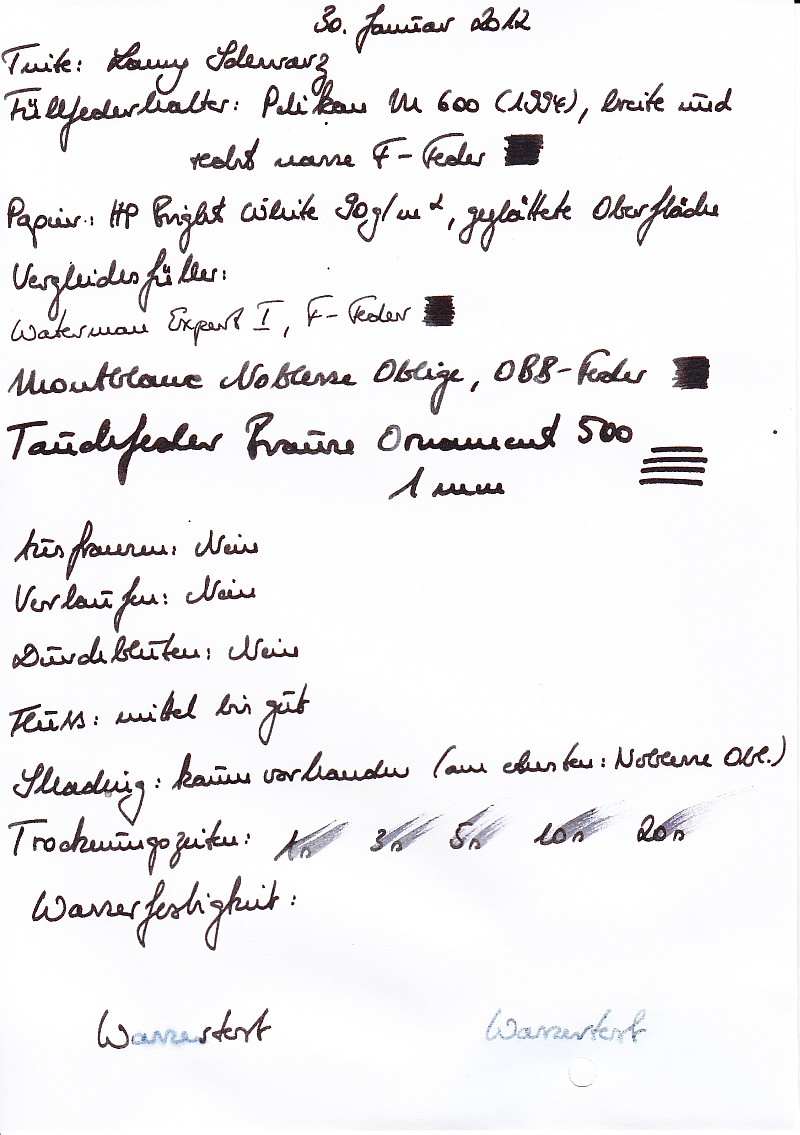 30. Januar 2012
Tinte: Lamy Schwarz
Füllfederhalter: Pelikan M 600 (1994), breite und
recht nasse F-Feder
Papier: HP Bright White 90g/m², geglättete Oberfläche
Vergleichsfüller:
Waterman Expert I, F-Feder
Montblanc Noblesse Oblige, OBB-Feder
Tauchfeder Brause Ornament 500
1 mm
Ausfransen: Nein
Verlaufen: Nein
Durchbluten: Nein
Fluss: mittel bis gut
Shading: kaum vorhanden (am ehesten: Noblesse Obl.)
Trocknungszeiten: 1s 3s 5s 10s 20s
Wasserfestigkeit:
Wassertest Wassertest